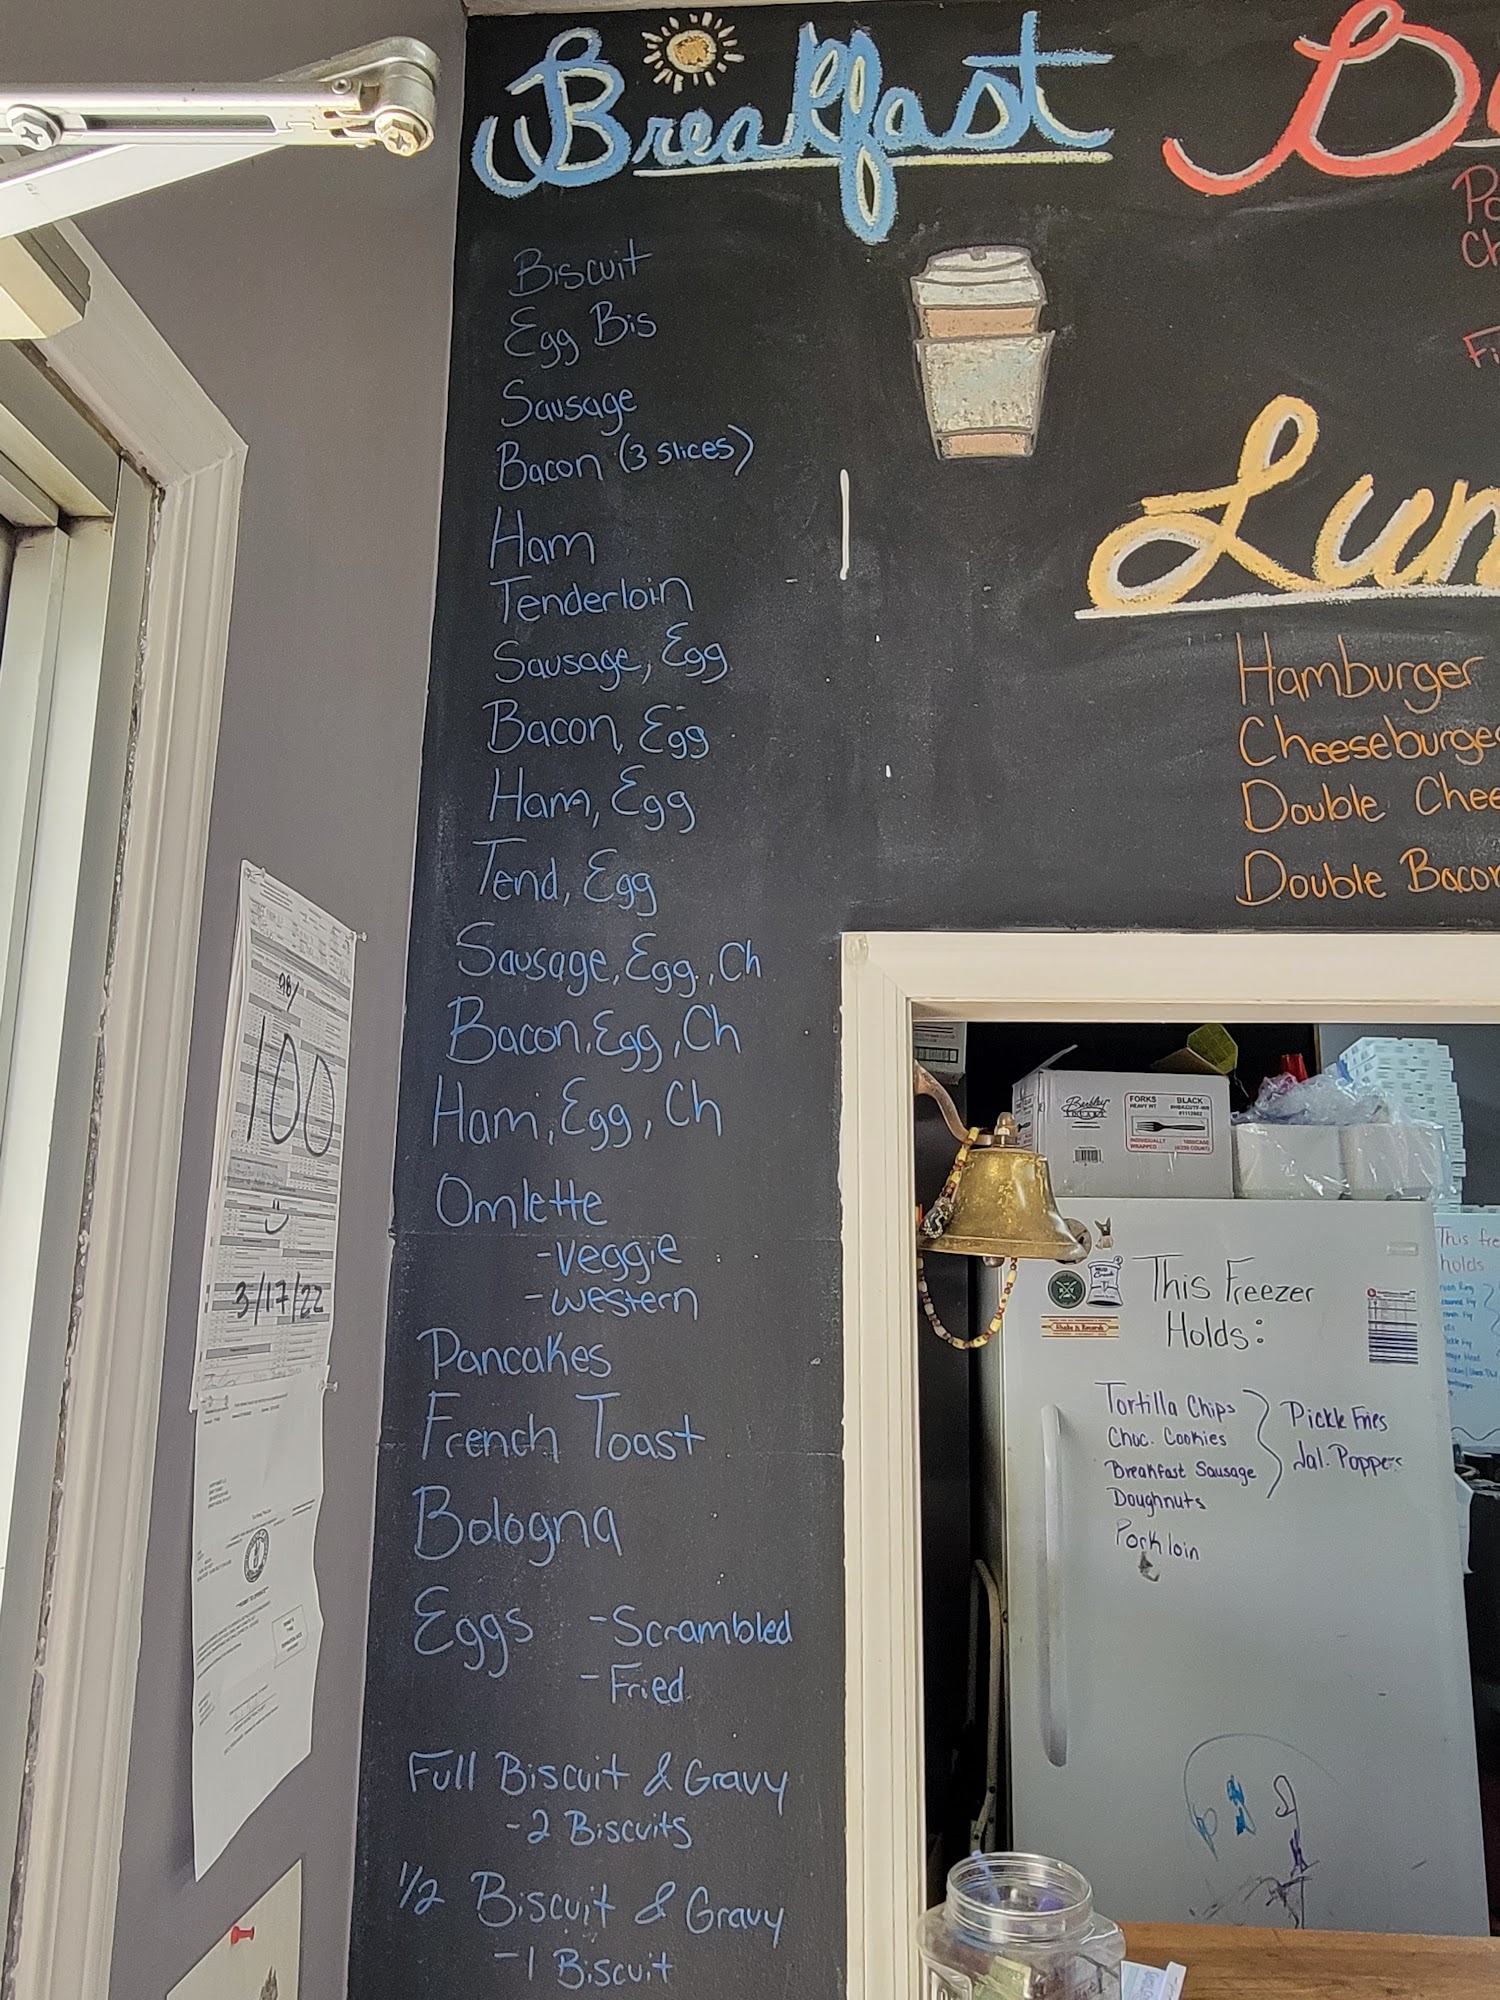 Breakfast
Biscuit
Egg Bis
Sausage
Bacon (3 slices)
Ham
Tenderloin
Sausage, Egg
Bacon, Egg
Ham, Egg
Tend, Egg
Sausage, Egg, Ch
Bacon, Egg, Ch
Ham, Egg, Ch
Omlette
-Veggie
-Western
Pancakes
French Toast
Bologna
Eggs -Scrambled
-Fried
Full Biscuit & Gravy
-2 Biscuits
1/2 Biscuit & Gravy
-1 Biscuit
Hamburger
Cheeseburger
Double Chee
Double Bacon
100
3/17/22
FORKS
HEAVY WT
BLACK
INDIVIDUALLY
WRAPPED
This Freezer
Holds:
Tortilla Chips
Choc. Cookies
Breakfast Sausage
Doughnuts
Pork loin
Pickle Fries
Jal. Poppers
This fre
holds